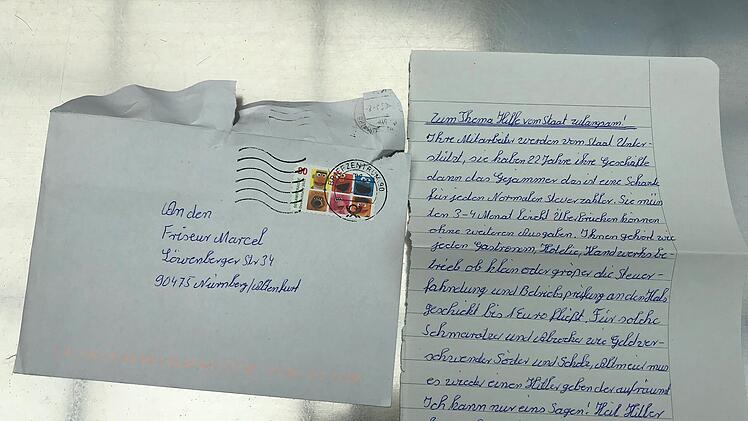 90
BRIEFZENTRUM 90
An den
Friseur Marcel
Löwenberger Str 34
90475 Nürnberg/Altenfurt
Zum Thema Hilfe vom Staat zulangsam!
Ihre Mitarbeiter werden vom Staat Unter-
stützt, sie haben 22 Jahre ihre Geschäfte
dann das Gejammer das ist eine Schande
für jeden Normalen Steuerzahler. Sie müs
ten 3-4 Monat leicht Überbrücken können
ohne weiteren Ausgaben. Ihnen gehört wie
jeden Gastronom, Hotelie, Handwerksbe-
trieb ob klein oder größer die Steuer-
fahndung und Betriebsprüfung an den Hals
geschickt bis 1 Euro fließt. Für solche
Schmarotzer und Abzocker wie Geldver-
schwender Söder und Scholz, Altmeier mus
es wieder einen Hitler geben der aufräumt
Ich kann nur eins Sagen! Heil Hitler